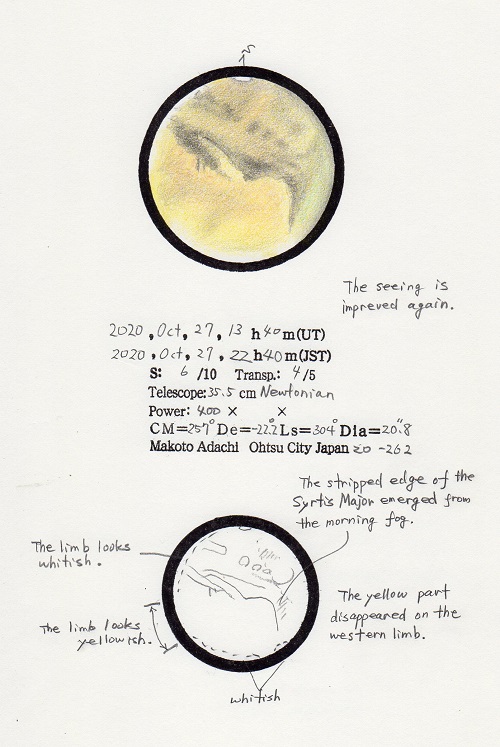 S
The seeing is
impreved again.
2020, Oct, 27, 13 h 40 m (UT)
2020, Oct, 27, 22 h 40 m (JST)
S: 6 /10 Transp.: 4 /5
Telescope: 35.5 cm Newtonian
Power: 400 × ×
CM=257° De=-22.2 Ls=304° Dia=20".8
Makoto Adachi Ohtsu City Japan 20-262
The stripped edge of the
Syrtis Major emerged from
the morning fog.
The limb looks
whitish.
The yellow part
disappeared on the
western limb.
The limb looks
yellowish.
whitish